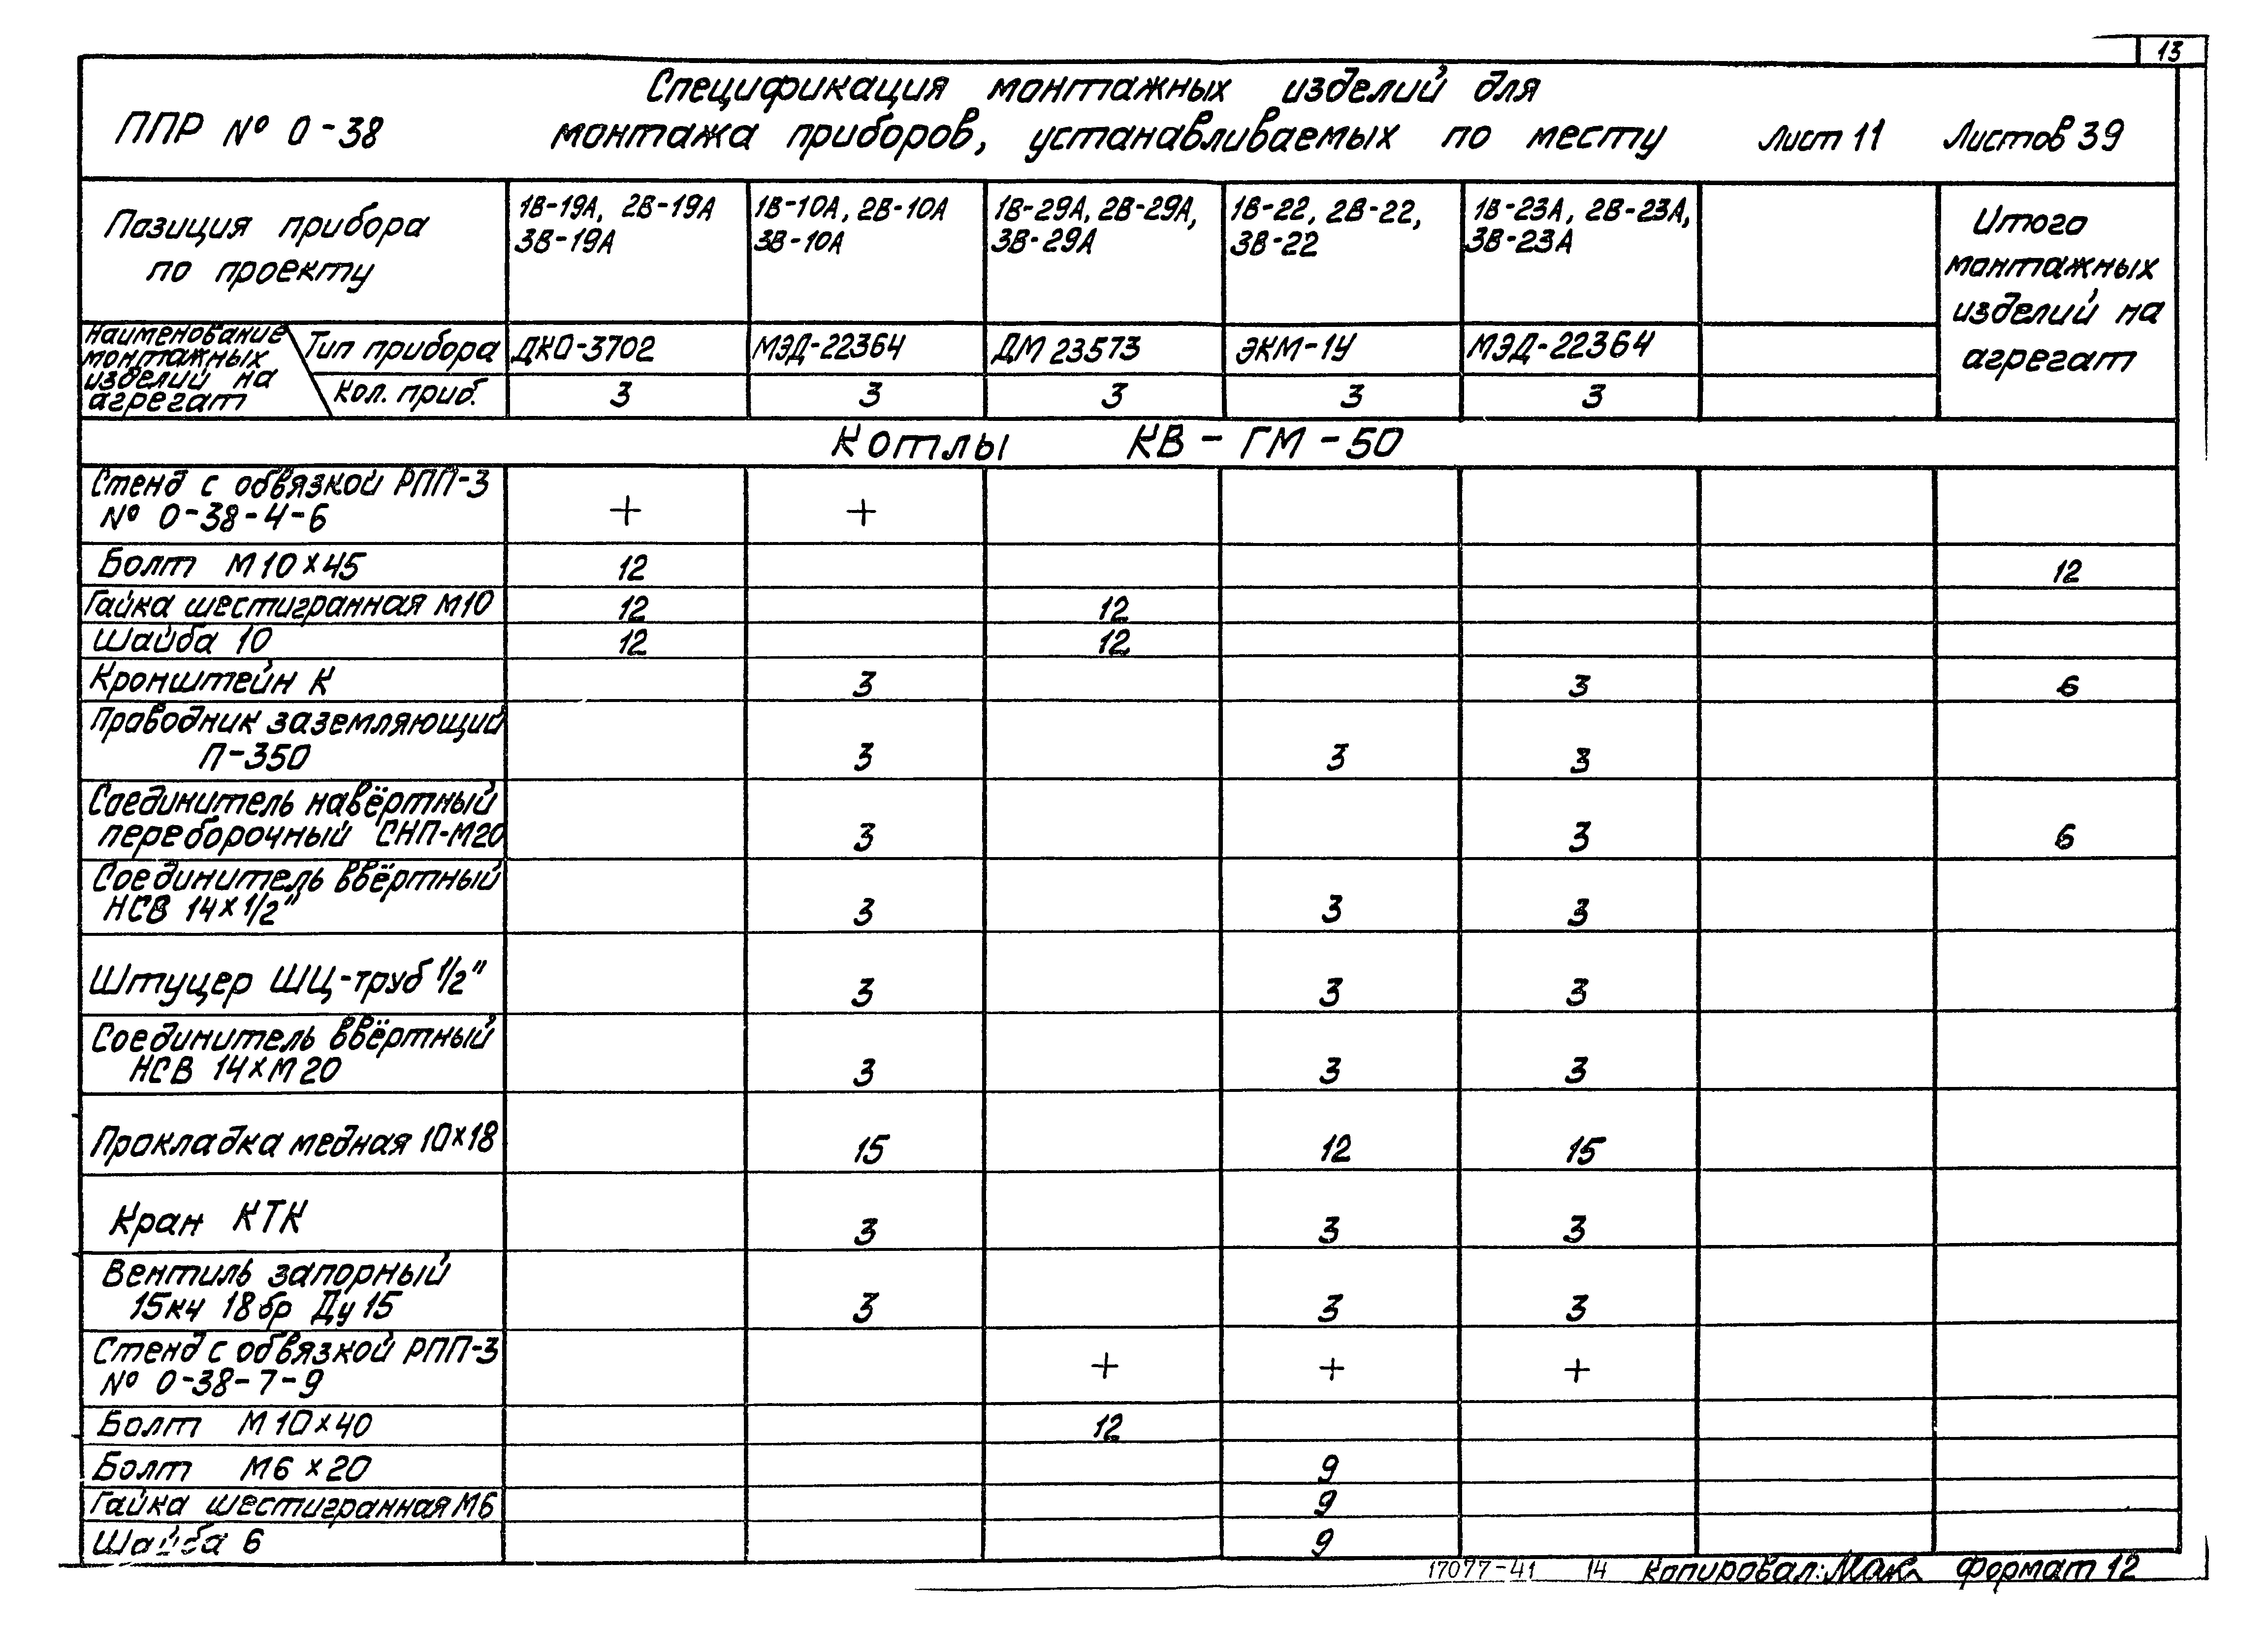 13
Спецификация монтажных изделий для
ППР № 0-38 монтажа приборов, устанавливаемых по месту Лист 11 Листов 39
Позиция прибора по проекту
1В-19А, 2В-19А
3В-19А
1В-10А, 2В-10А
3В-10А
1В-29А, 2В-29А,
3В-29А
1В-22, 2В-22,
3В-22
1В-23А, 2В-23А,
3В-23А
Итого
монтажных
изделий на
агрегат
Наименование
монтажных
изделий на
агрегат
Тип прибора ДКО-3702 МЭД-22364 ДМ 23573 ЭКМ-1У МЭД-22364
Кол. приб. 3 3 3 3 3
Котлы КВ-ГМ-50
Стенд с обвязкой РПП-3
№ 0-38-4-6 + +
Болт М10х45 12 12
Гайка шестигранная М10 12 12
Шайба 10 12 12
Кронштейн К 3 3 6
Проводник заземляющий
П-350 3 3 3
Соединитель навёртный
переборочный СНП-М20 3 3 6
Соединитель ввёртный
НСВ 14х1/2" 3 3 3
Штуцер ШЦ-труб 1/2" 3 3 3
Соединитель ввёртный
НСВ 14хМ20 3 3 3
Прокладка медная 10х18 15 12 15
Кран КТК 3 3 3
Вентиль запорный
15кч 18бр Ду 15 3 3 3
Стенд с обвязкой РПП-3
№ 0-38-7-9 + + +
Болт М10х40 12
Болт М6х20 9
Гайка шестигранная М6 9
Шайба 6 9
17077-41 14 Копировал: Мак Формат 12